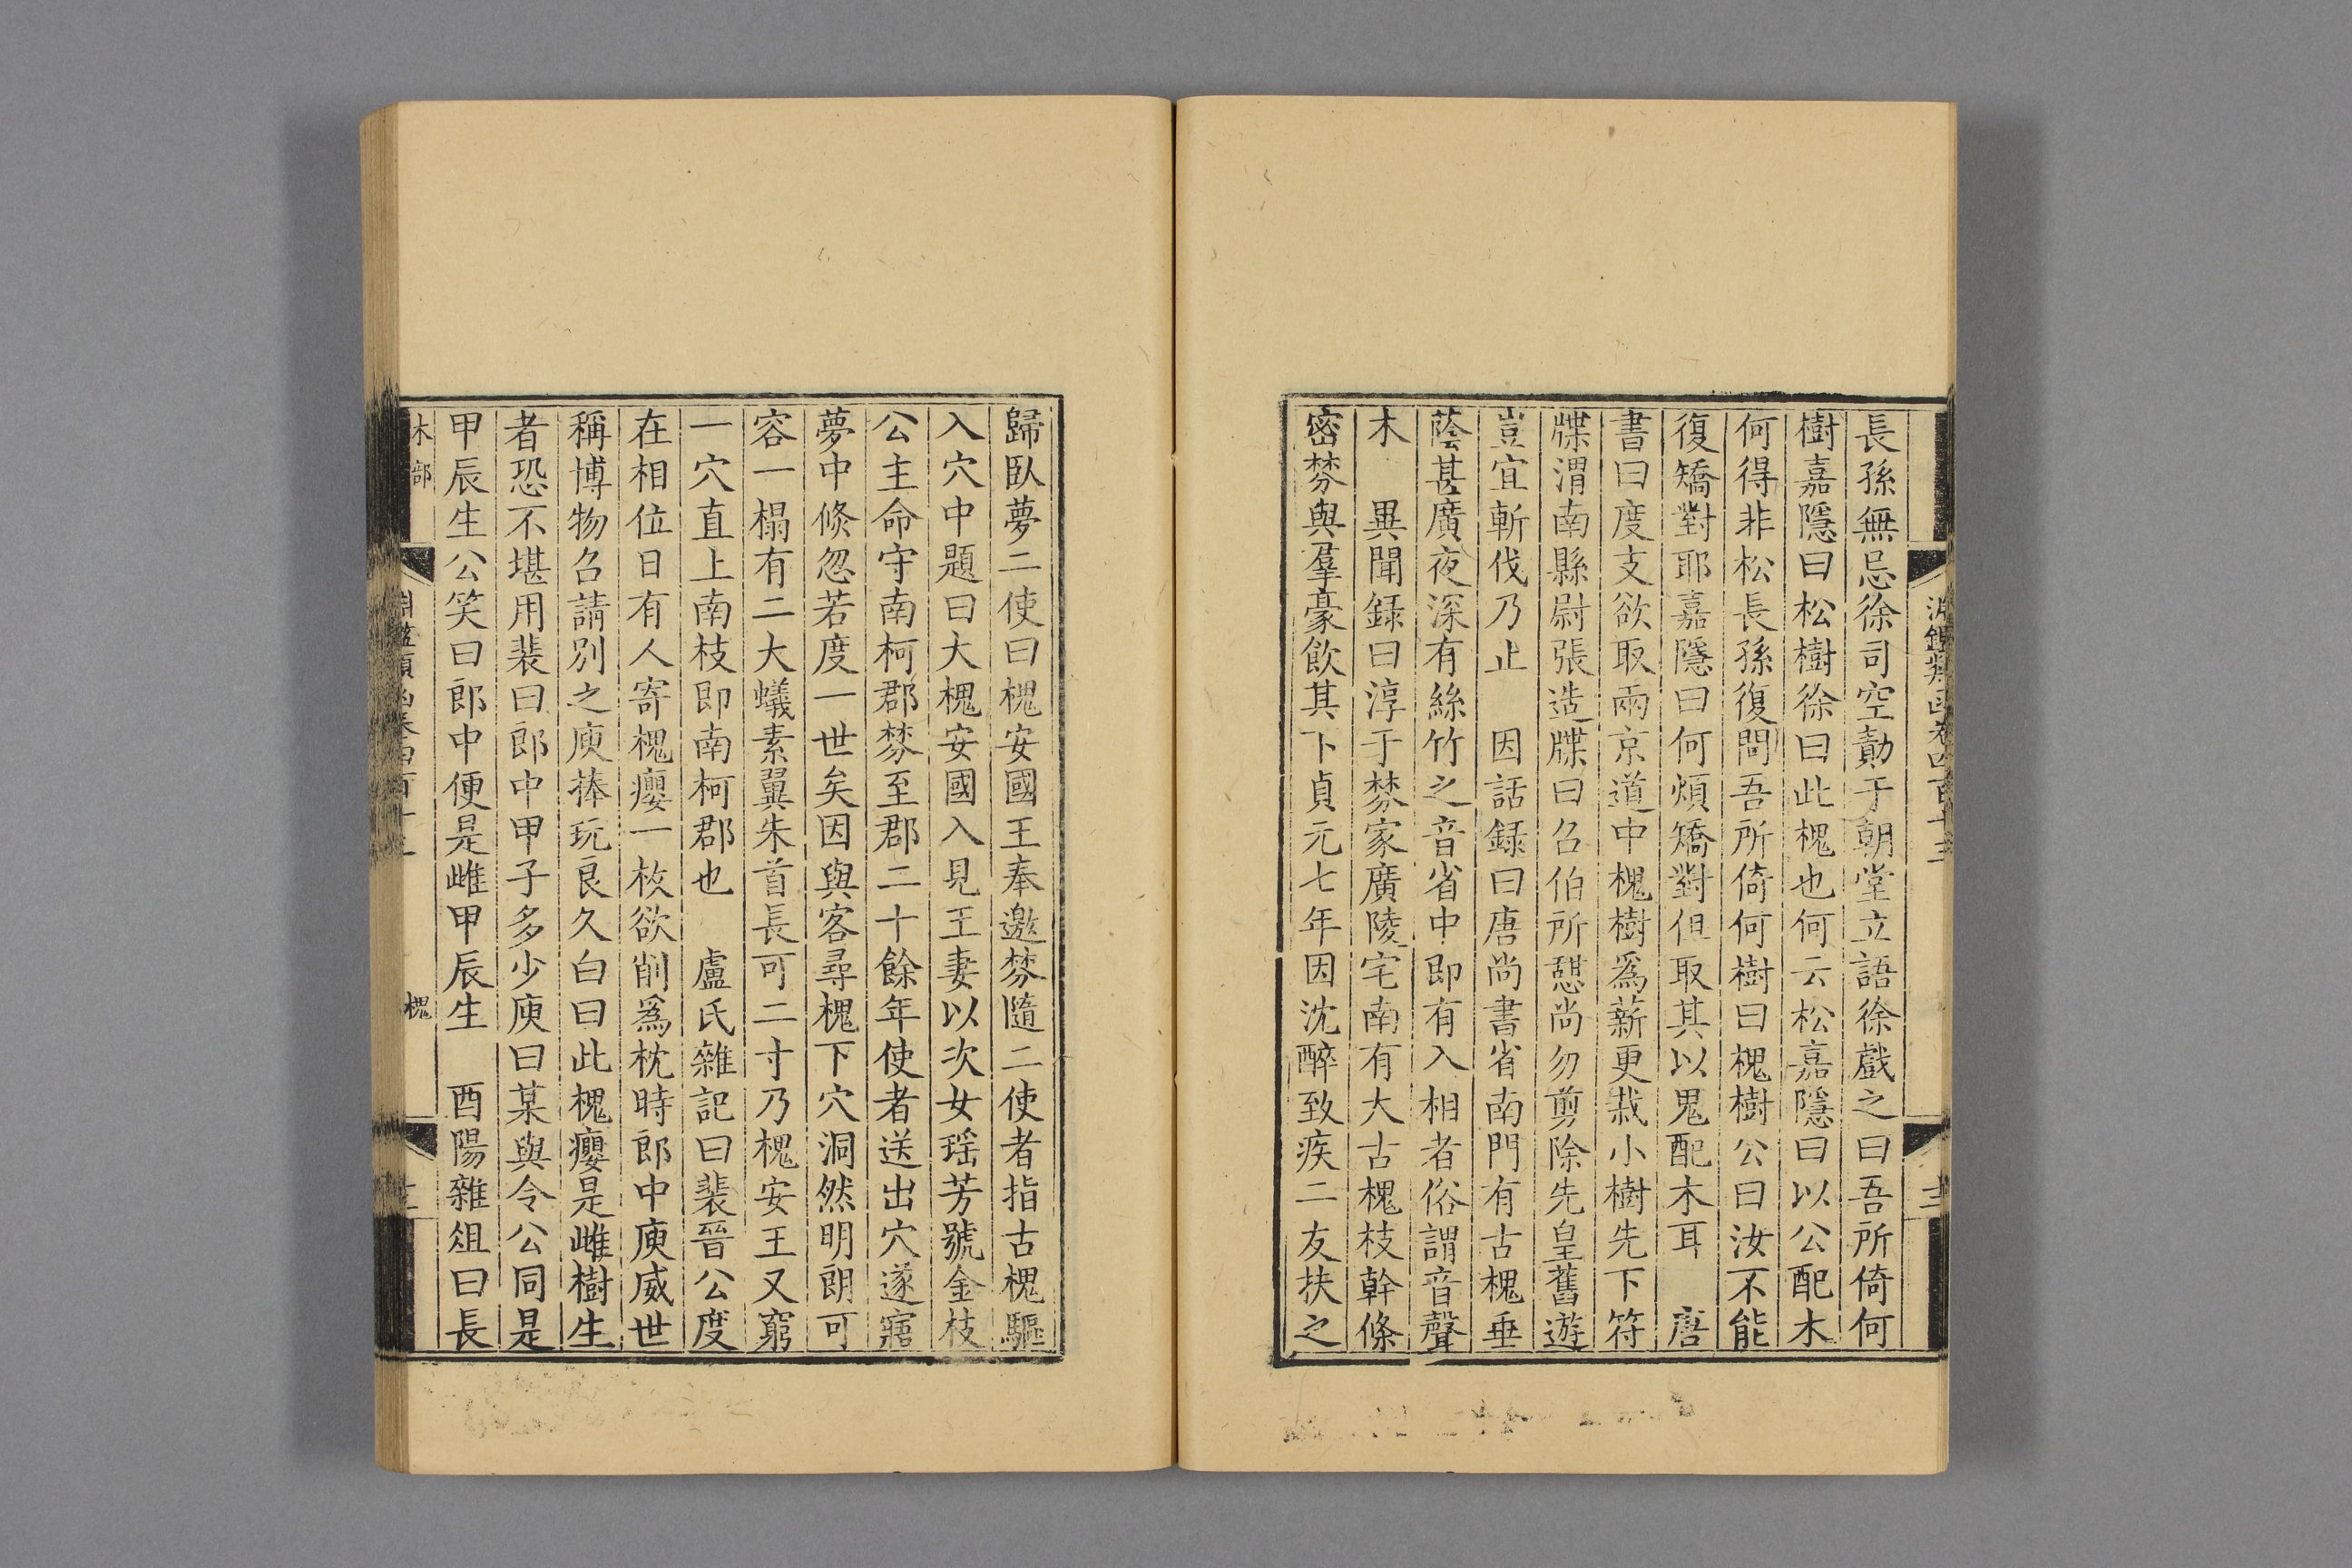 長孫無忌徐司空勣于朝堂立語徐戲之曰吾所倚何
樹嘉隱曰松樹徐曰此槐也何云松嘉隱曰以公配木
何得非松長孫復問吾所倚何樹曰槐樹公曰汝不能
復矯對耶嘉隱曰何煩矯對但取其以鬼配木耳　唐
書曰度支欲取兩京道中槐樹爲薪更栽小樹先下符
牒渭南縣尉張造牒曰召伯所憇尚勿剪除先皇舊遊
豈宜斬伐乃止　因話録曰唐尚書省南門有古槐垂
蔭甚廣夜深有絲竹之音省中即有入相者俗謂音聲
木　異聞録曰淳于棼家廣陵宅南有大古槐枝幹條
密棼與羣豪飲其下貞元七年因沈醉致疾二友扶之
歸臥夢二使曰槐安國王奉邀棼隨二使者指古槐驅
入穴中題曰大槐安國入見王妻以次女瑶芳號金枝
公主命守南柯郡棼至郡二十餘年使者送出穴遂寤
夢中倐忽若度一世矣因與客尋槐下穴洞然明朗可
容一榻有二大蟻素翼朱首長可二寸乃槐安王又窮
一穴直上南枝即南柯郡也　盧氏雜記曰裴晉公度
在相位日有人寄槐癭一枚欲削爲枕時郎中庾威世
稱博物召請別之庾捧玩良久白曰此槐癭是雌樹生
者恐不堪用裴曰郎中甲子多少庾曰某與令公同是
甲辰生公笑曰郎中便是雌甲辰生　酉陽雜俎曰長
木部　槐